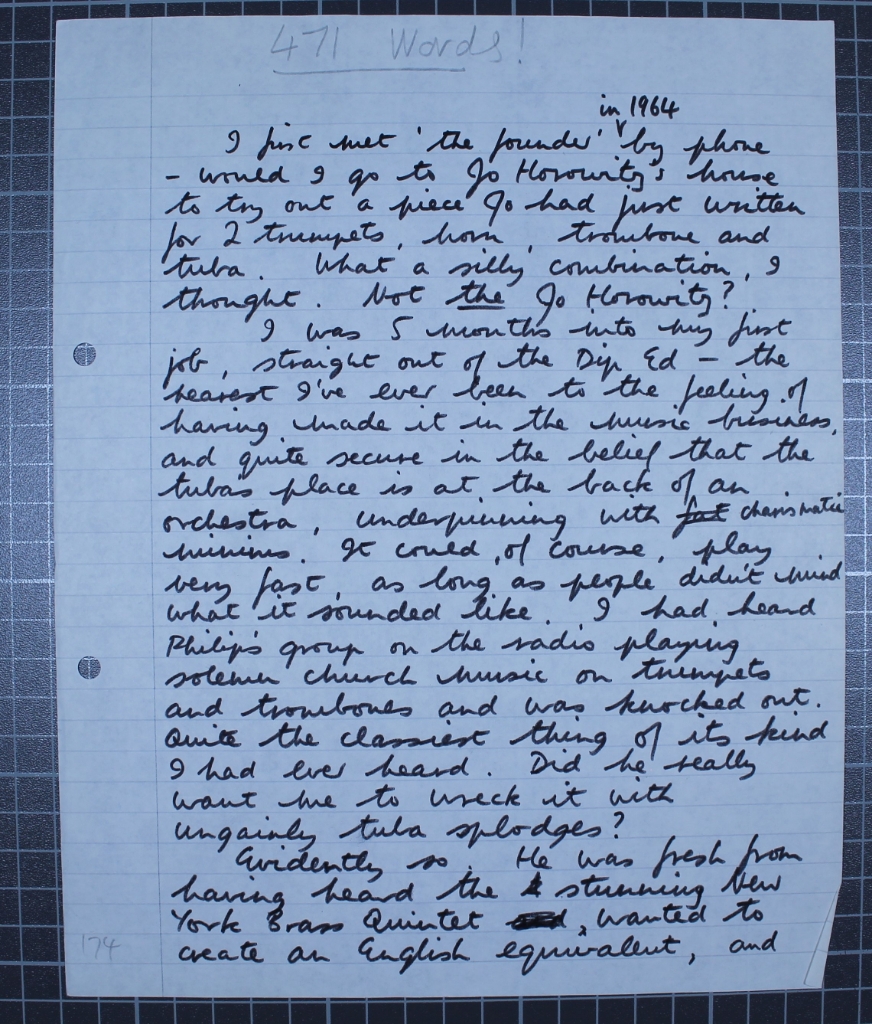 471 Words!
in 1964
I first met 'the founder' by phone
- would I go to Jo Horowitz's house
to try out a piece Jo had just written
for 2 trumpets, horn, trombone and
tuba. What a silly combination, I
thought. Not the Jo Horowitz?
I was 5 months into my first
job, straight out of the Dip Ed - the
nearest I've ever been to the feeling of
having made it in the music business,
and quite secure in the belief that the
tubas place is at the back of an
orchestra, underpinning with fat charismatic
minims. It could, of course, play
very fast, as long as people didn't mind
what it sounded like. I had heard
Philip's group on the radio playing
solemn church music on trumpets
and trombones and was knocked out.
Quite the classiest thing of its kind
I had ever heard. Did he really
want me to wreck it with
ungainly tuba splodges?
Evidently so. He was fresh from
having heard the stunning New
York Brass Quintet, wanted to
create an English equivalent, and
174